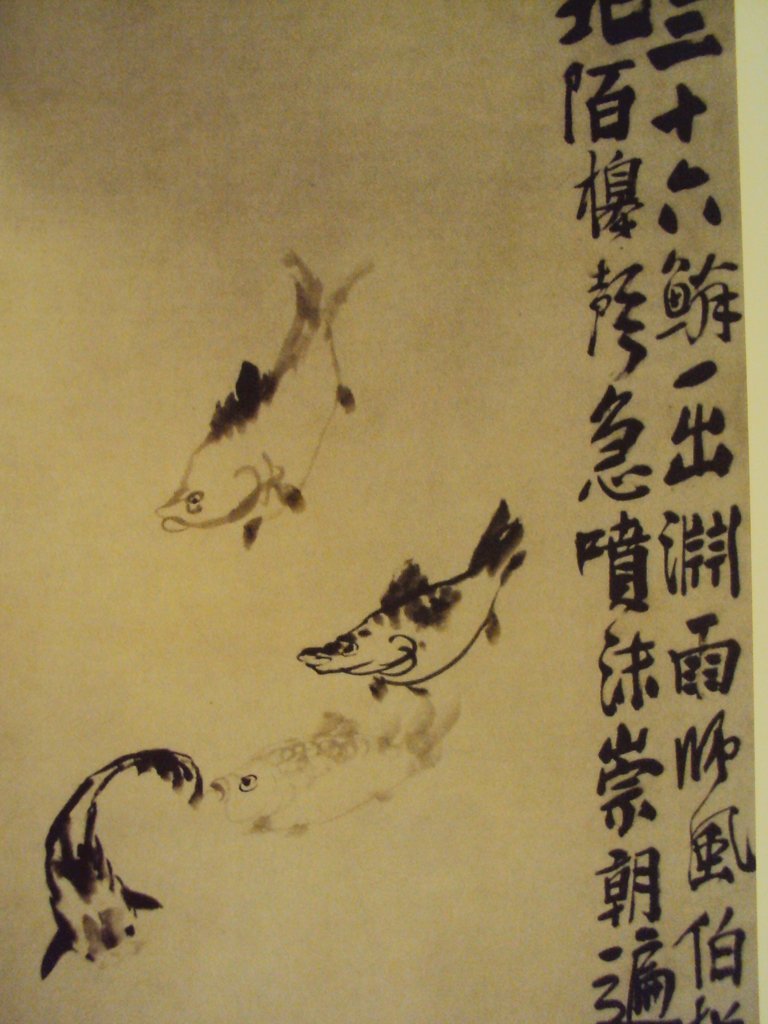 三十六鱗一出淵雨師風伯
北陌槔聲急噴沫崇朝遍